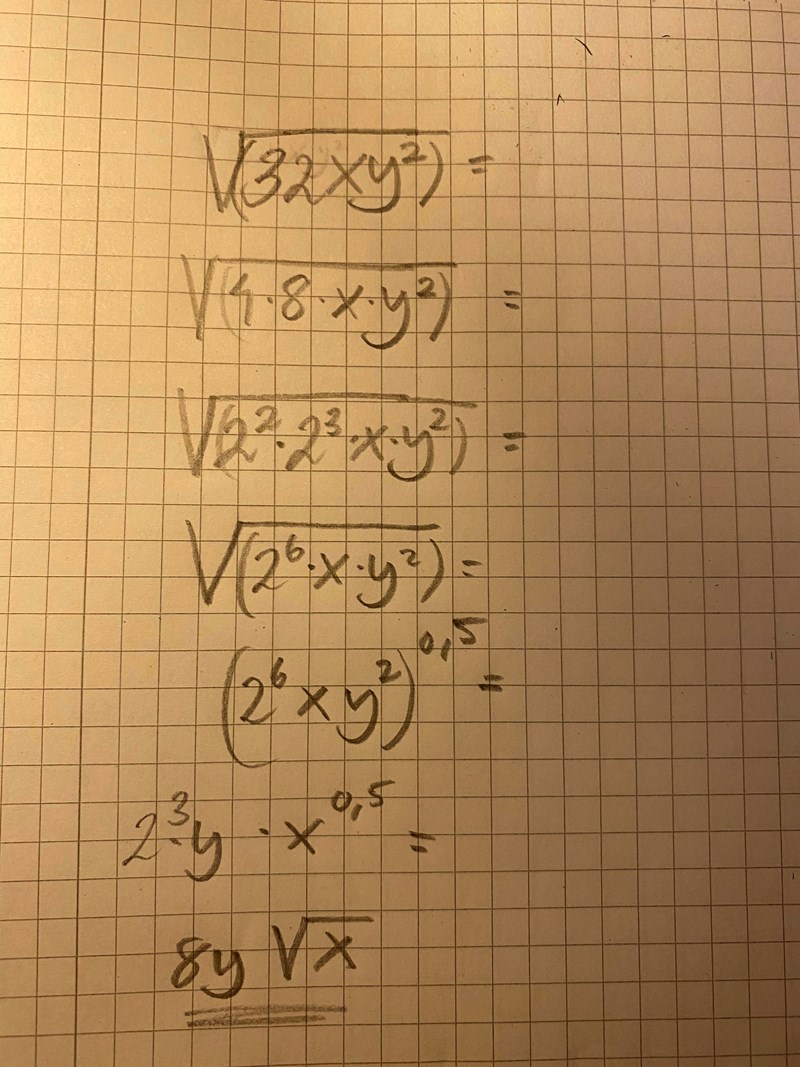 √(32xy²) =
√(4·8·x·y²) =
√(2²·2³·x·y²) =
√(2⁶·x·y²) =
(2⁶xy²)^0,5 =
2³·y·x^0,5 =
8y√x